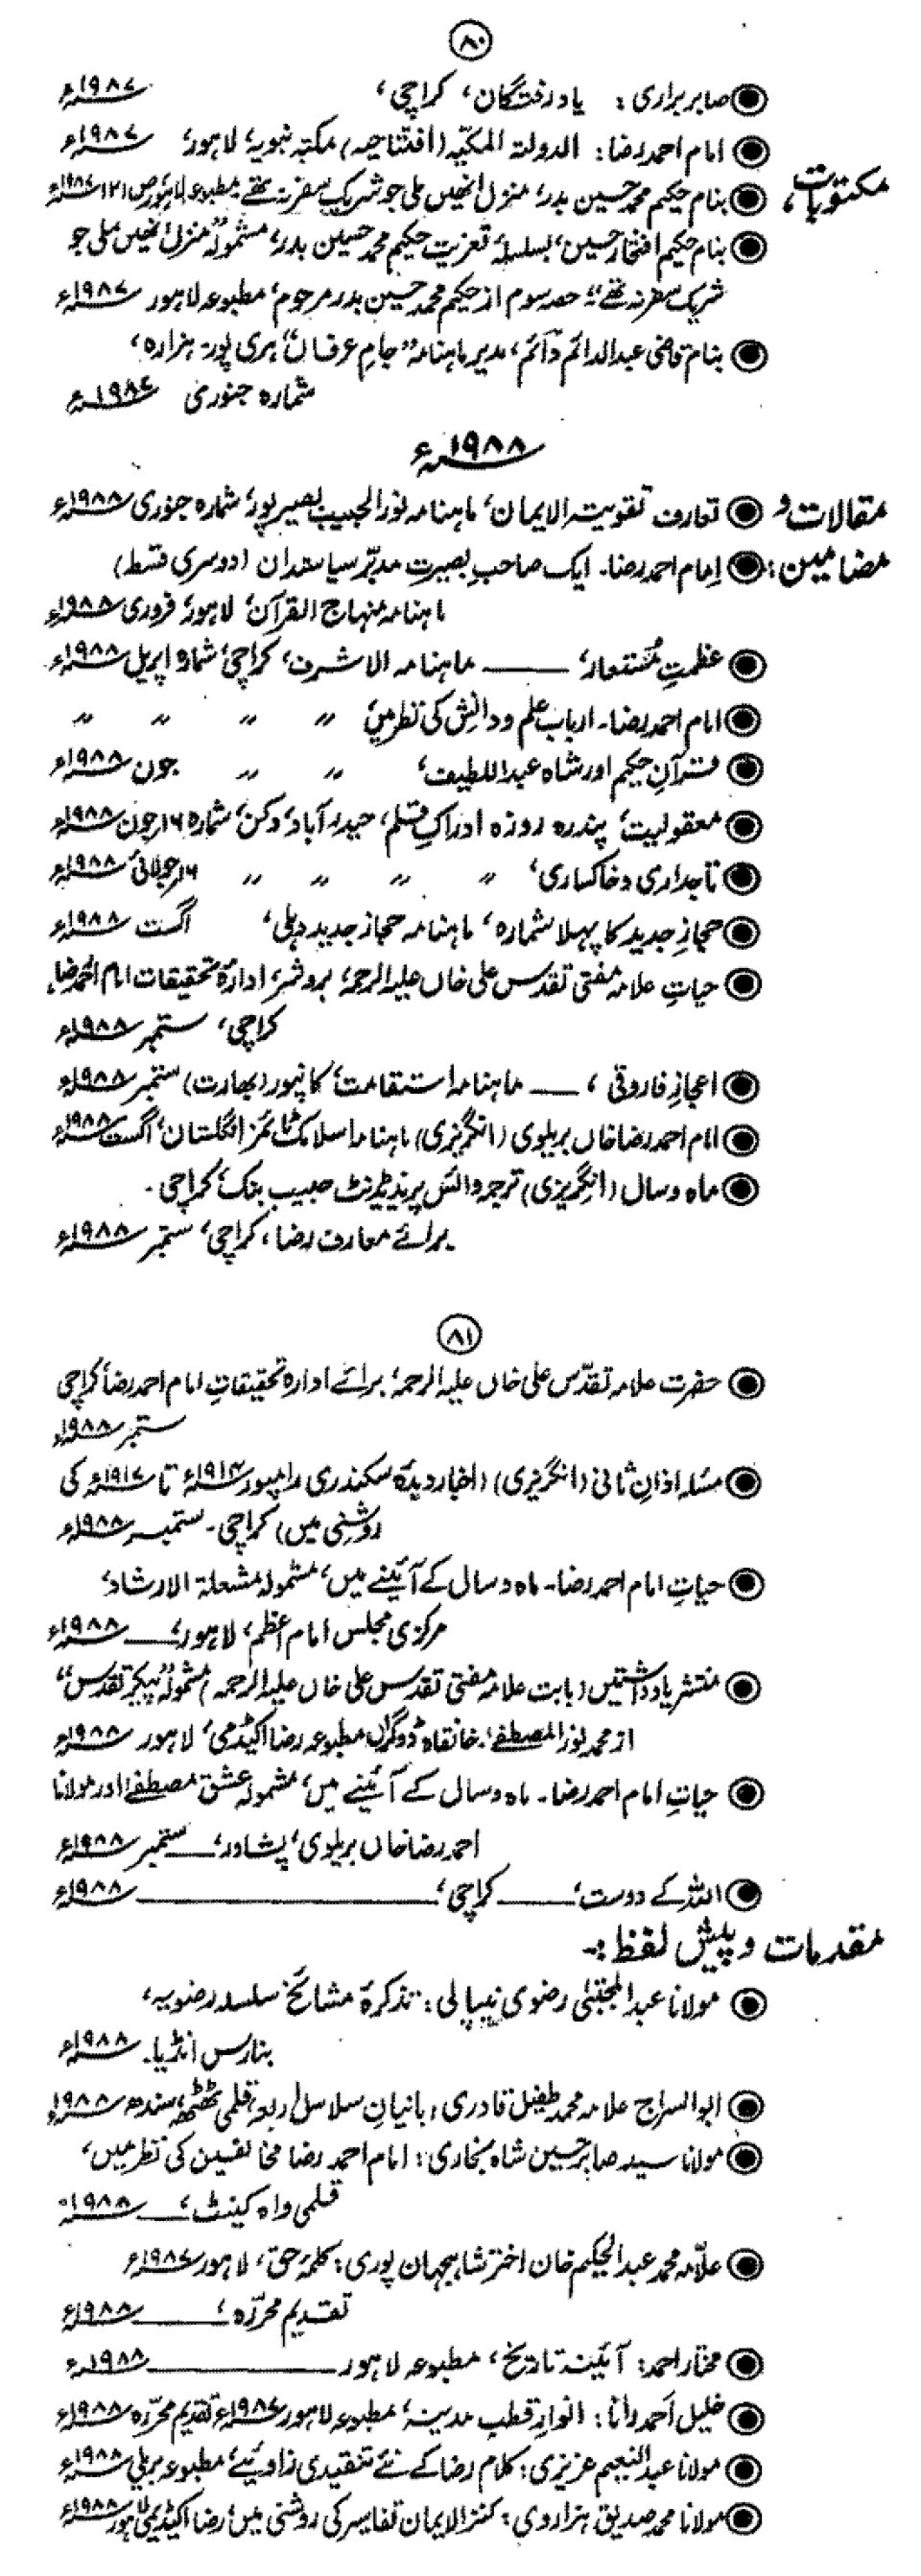 ۸۰
صابر براری: یاد رفتگان، کراچی، ۱۹۸۷ء
امام احمد رضا: الدولۃ المکیہ (افتتاحیہ) مکتبہ نبویہ، لاہور، ۱۹۸۷ء
مکتوبات، بنام حکیم محمد حسین بدر، منزل انھیں ملی جو شریک سفر نہ تھے مطبوعہ لاہور ص ۱۲۱ ۱۹۸۷ء
بنام حکیم افتخار حسین، بسلسلۂ تعزیت حکیم محمد حسین بدر، مشمولہ "منزل انھیں ملی جو
شریک سفر نہ تھے" حصہ سوم از حکیم محمد حسین بدر مرحوم، مطبوعہ لاہور ۱۹۸۷ء
بنام قاضی عبدالدائم دائم، مدیر ماہنامہ "جامِ عرفان" ہری پور ہزارہ،
شمارہ جنوری ۱۹۸۶ء
۱۹۸۸ء
مقالات و تعارف تقویت الایمان، ماہنامہ نور الحبیب بصیر پور، شمارہ جنوری ۱۹۸۸ء
مضامین: امام احمد رضا۔ ایک صاحبِ بصیرت مدبّر سیاستدان (دوسری قسط)
ماہنامہ منہاج القرآن، لاہور، فروری ۱۹۸۸ء
عظمتِ مُستعار، ــــــ ماہنامہ الاشرف، کراچی، شمارہ اپریل ۱۹۸۸ء
امام احمد رضا۔ اربابِ علم و دانش کی نظر میں، 〃 〃 〃 〃
قرآنِ حکیم اور شاہ عبداللطیف، 〃 〃 جون ۱۹۸۸ء
معقولیت، پندرہ روزہ ادراکِ قلم، حیدر آباد، دکن، شمارہ ۱۶ جون ۱۹۸۸ء
تاجداری و خاکساری، 〃 〃 〃 〃 ۱۶ جولائی ۱۹۸۸ء
حجازِ جدید کا پہلا شمارہ، ماہنامہ حجاز جدید دہلی، اگست ۱۹۸۸ء
حیاتِ علامہ مفتی تقدس علی خاں علیہ الرحمہ، بروشر، ادارۂ تحقیقات امام احمد رضا،
کراچی، ستمبر ۱۹۸۸ء
اعجازِ فاروقی، ـــ ماہنامہ استقامت، کانپور (بھارت) ستمبر ۱۹۸۸ء
امام احمد رضا خاں بریلوی (انگریزی) ماہنامہ اسلامک ٹائمز انگلستان، اگست ۱۹۸۸ء
ماہ و سال (انگریزی) ترجمہ وائس پریذیڈنٹ حبیب بنک، کراچی۔
برائے معارف رضا، کراچی، ستمبر ۱۹۸۸ء
۸۱
حضرت علامہ تقدّس علی خاں علیہ الرحمہ، برائے ادارہ تحقیقاتِ امام احمد رضا، کراچی
ستمبر ۱۹۸۸ء
مسئلہ اذانِ ثانی (انگریزی) (اخبار دبدبۂ سکندری رامپور ۱۹۱۴ء تا ۱۹۱۷ء کی
روشنی میں) کراچی۔ ستمبر ۱۹۸۸ء
حیاتِ امام احمد رضا۔ ماہ و سال کے آئینے میں، مشمولہ مشعلۃ الارشاد،
مرکزی مجلس امام اعظم، لاہور، ـــ ۱۹۸۸ء
منتشر یادداشتیں (بابت علامہ مفتی تقدس علی خاں علیہ الرحمہ) مشمولہ "پیکر تقدس"
از محمد نور المصطفےٰ، خانقاہ ڈوگراں مطبوعہ رضا اکیڈمی، لاہور ۱۹۸۸ء
حیاتِ امام احمد رضا۔ ماہ و سال کے آئینے میں، مشمولہ عشق مصطفےٰ اور مولانا
احمد رضا خاں بریلوی، پشاور، ـــ ستمبر ۱۹۸۸ء
اللہ کے دوست، ـــ کراچی، ــــــــــــ ۱۹۸۸ء
مقدمات و پیش لفظ:۔
مولانا عبدالمجتبٰی رضوی نیپالی: تذکرۂ مشائخ سلسلہ رضویہ،
بنارس انڈیا۔ ۱۹۸۸ء
ابوالسراج علامہ محمد طفیل قادری: بانیانِ سلاسل اربعہ قلمی ٹھٹھہ، سندھ ۱۹۸۸ء
مولانا سید صابر حسین شاہ بخاری: امام احمد رضا مخالفین کی نظر میں،
قلمی واہ کینٹ، ـــ ۱۹۸۸ء
علامہ محمد عبدالحکیم خان اختر شاہجہان پوری: کلمۂ حق، لاہور ۱۹۸۷ء
تقدیم محررہ، ــــ ۱۹۸۸ء
مختار احمد: آئینہ تاریخ، مطبوعہ لاہور ــــــــ ۱۹۸۸ء
خلیل احمد رانا: انوارِ قطب مدینہ، مطبوعہ لاہور ۱۹۸۷ء تقدیم محررہ ۱۹۸۸ء
مولانا عبدالنعیم عزیزی: کلام رضا کے نئے تنقیدی زاوئیے، مطبوعہ بریلی ۱۹۸۸ء
مولانا محمد صدیق ہزاروی: کنزالایمان تفاسیر کی روشنی میں، رضا اکیڈیمی لاہور ۱۹۸۸ء